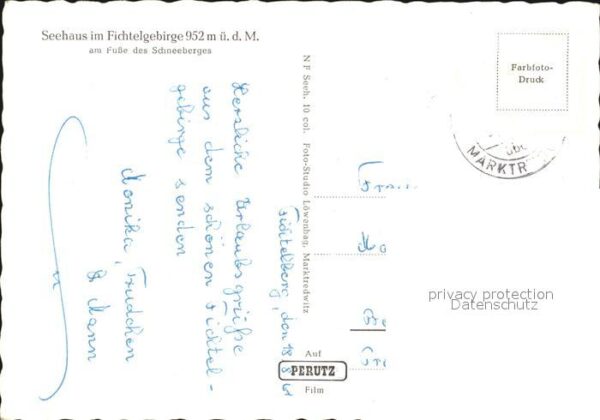 Seehaus im Fichtelgebirge 952 m ü. d. M.
am Fuße des Schneeberges
Farbfoto-
Druck
MARKTR
N F Seeh. 10 col. Foto-Studio Löwenhag, Marktredwitz
Fichtelberg, den 18.8.61
Herzliche Urlaubsgrüße
aus dem schönen Fichtel-
gebirge senden
Monika, Trudchen
& Mann
privacy protection
Datenschutz
Auf
PERUTZ
Film